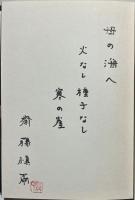 母の海へ
火なし種子なし
寒の崖
齋藤愼爾